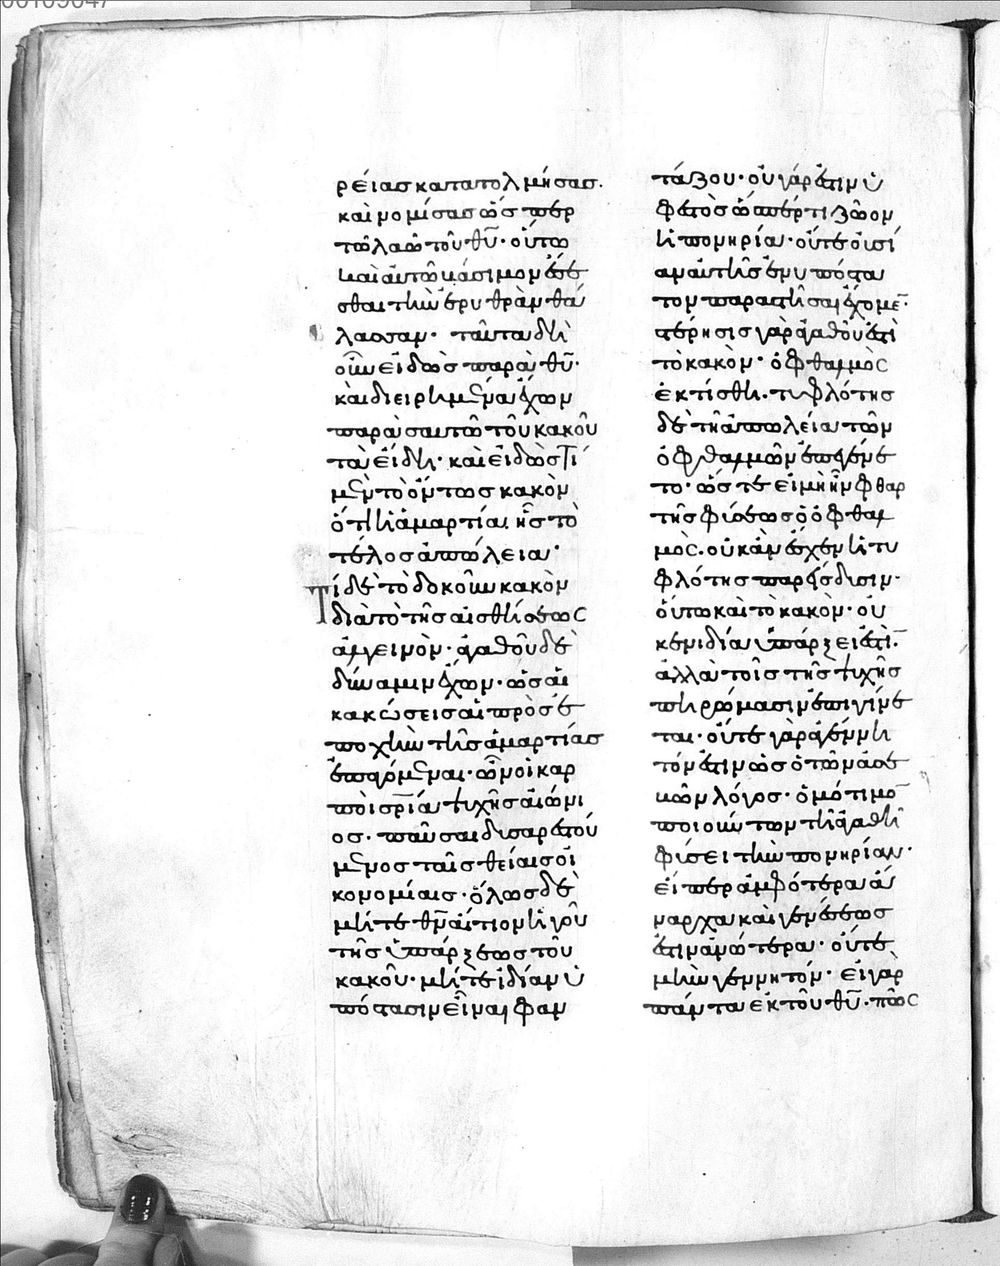 ρείας κατατολμήσας.
καὶ νομίσας ὥσπερ
τῶ λαῶ τοῦ θῦ· οὕτω
καὶ αὐτῶ βάσιμον ἔσε
σθαι τὴν ἐρυθρὰν θά
λασσαν· ταῦτα δὴ
οὖν εἰδὼς παρὰ θῦ·
καὶ διειρημένα ἔχων
παρὰ σαυτῶ τοῦ κακοῦ
τὰ εἴδη· καὶ εἰδὼς τί
μὲν τὸ ὄντως κακὸν
ὅτι ἡ ἁμαρτία. ἧς τὸ
τέλος ἀπώλεια·
Τί δὲ τὸ δοκοῦν κακὸν
διὰ τὸ τῆς αἰσθήσεως
ἀλγεινὸν· ἀγαθοῦ δὲ
δύναμιν ἔχων· ὡς αἱ
κακώσεις αἱ πρὸς ἐ
ποχὴν τῆς ἁμαρτίας
ἐπαγόμεναι· ὧν οἱ καρ
ποὶ σρία ψυχῆς αἰώνι
ος. παῦσαι δυσαρετού
μενος ταῖς θείαις οἰ
κονομίαις. ὅλως δὲ
μήτε θν αἴτιον ἡγοῦ
τῆς ὑπάρξεως τοῦ
κακοῦ· μήτε ἰδίαν ὑ
πόστασιν εἶναι φαν
τάζου· οὐ γάρ ἐστιν ὑ
φετὸς ὥσπέρ τι ζῶον
ἡ πονηρία· οὔτε οὐσί
αν αὐτῆς ἐνυπόστα
τον παραστῆσαι ἔχομεν·
στέρησις γὰρ ἀγαθοῦ ἐστὶ
τὸ κακὸν· ὀφθαλμὸς
ἐκτίσθη. τυφλότης
δὲ τῆ ἀπωλεία τῶν
ὀφθαλμῶν ἐπεγένε
το· ὥστε εἰ μὴ ἦν φθαρ
τῆς φύσεως ὁ ὀφθαλ
μὸς. οὐκ ἂν ἔσχεν ἡ τυ
φλότης παρείσδυσιν·
οὕτω καὶ τὸ κακὸν· οὐ
κ ἐν ἰδία ὑπάρξει ἐστὶ.
ἀλλὰ τοῖς τῆς ψυχῆς
πηρώμασιν ἐπιγίνε
ται· οὔτε γὰρ ἀγέννη
τόν ἐστιν ὡς ὁ τῶν ἀσε
βῶν λόγος· ὁμότιμον
ποιούντων τῆ ἀγαθῆ
φύσει τὴν πονηρίαν·
εἴπερ ἀμφότερα ἄ
ναρχα καὶ γενέσεως
ἐστιν ἀνώτερα· οὔτε
μὴν γεννητόν· εἰ γὰρ
πάντα ἐκ τοῦ θῦ. πῶς